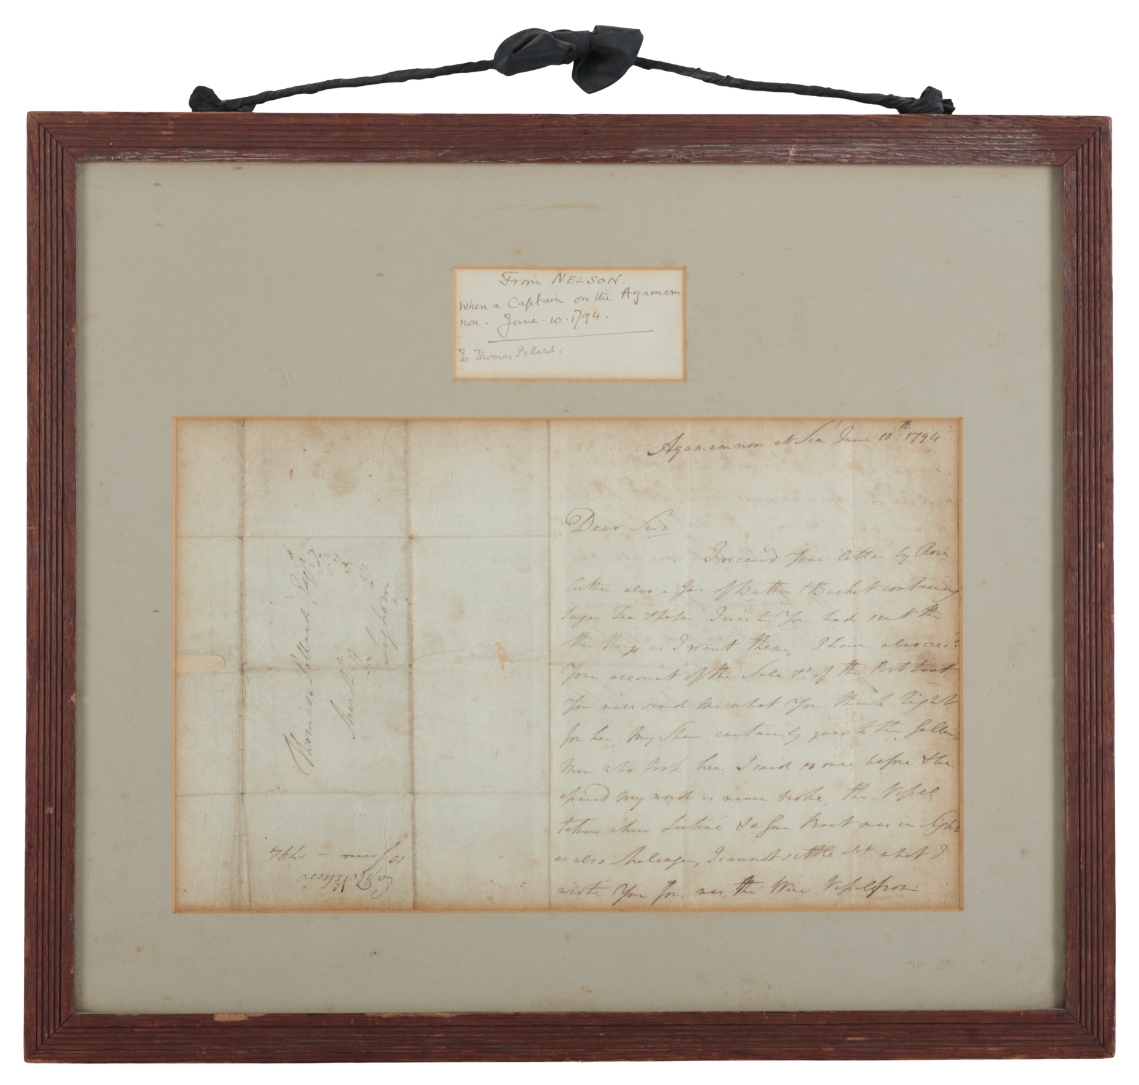 From NELSON.
When a Captain on the Agamem
non - June - 10 - 1794.
To Thomas Pollard.
Agamemnon at Sea June 10th 1794
Dear Sir
I received your letter by
letter also a Jar of Butter & Basket containing
Sugar Tea I wish You had sent the
the things as I want them, I have also
Your account of the Sale of the Port
You will send me what You think right
for her, My Share certainly goes to the Gallant
Men who took her, I said so once before &
my word is never broke, the Vessel
taken when Lutine & a Gun Boat was in Sight
is also I cannot settle what I
wish You for, was the Wine Vessel from
Thomas Pollard Esqr
Leghorn
Capt Nelson
10 June - 794